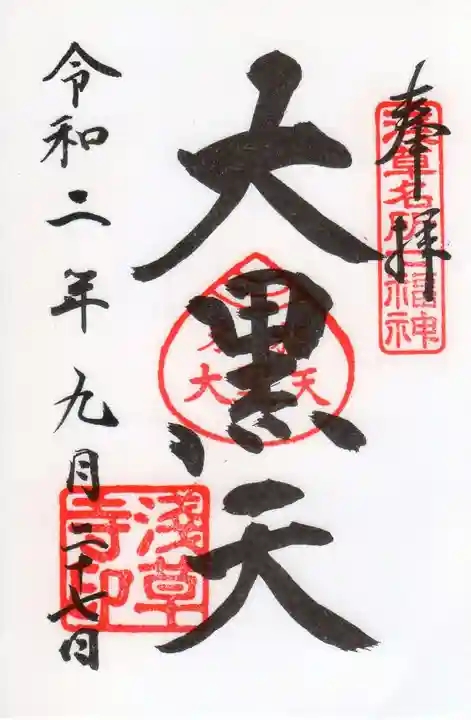 奉拝
浅草名所七福神
大黒天
大黒天
令和二年九月二十七日
淺草
寺印